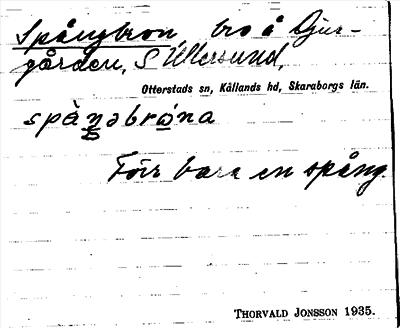 Spångbron, bro å Djur-
gården, S Ullersund,
Otterstads sn, Kållands hd, Skaraborgs län.
spàŋəbrώna
Förr bara en spång.
THORVALD JONSSON 1935.